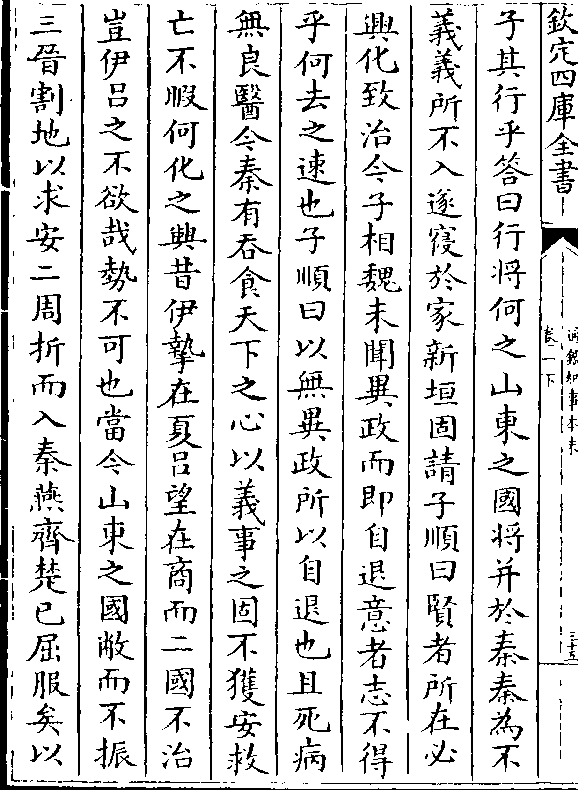 欽定四庫全書
通鑑紀事本末
卷一下
三十五
子其行乎答曰行将何之山東之國将并於秦秦為不
義義所不入遂寢於家新垣固請子順曰賢者所在必
興化致治今子相魏未聞異政而即自退意者志不得
乎何去之速也子順曰以無異政所以自退也且死病
無良醫今秦有吞食天下之心以義事之固不獲安救
亡不暇何化之興昔伊摯在夏吕望在商而二國不治
豈伊吕之不欲哉勢不可也當今山東之國敝而不振
三晉割地以求安二周折而入秦燕齊楚已屈服矣以